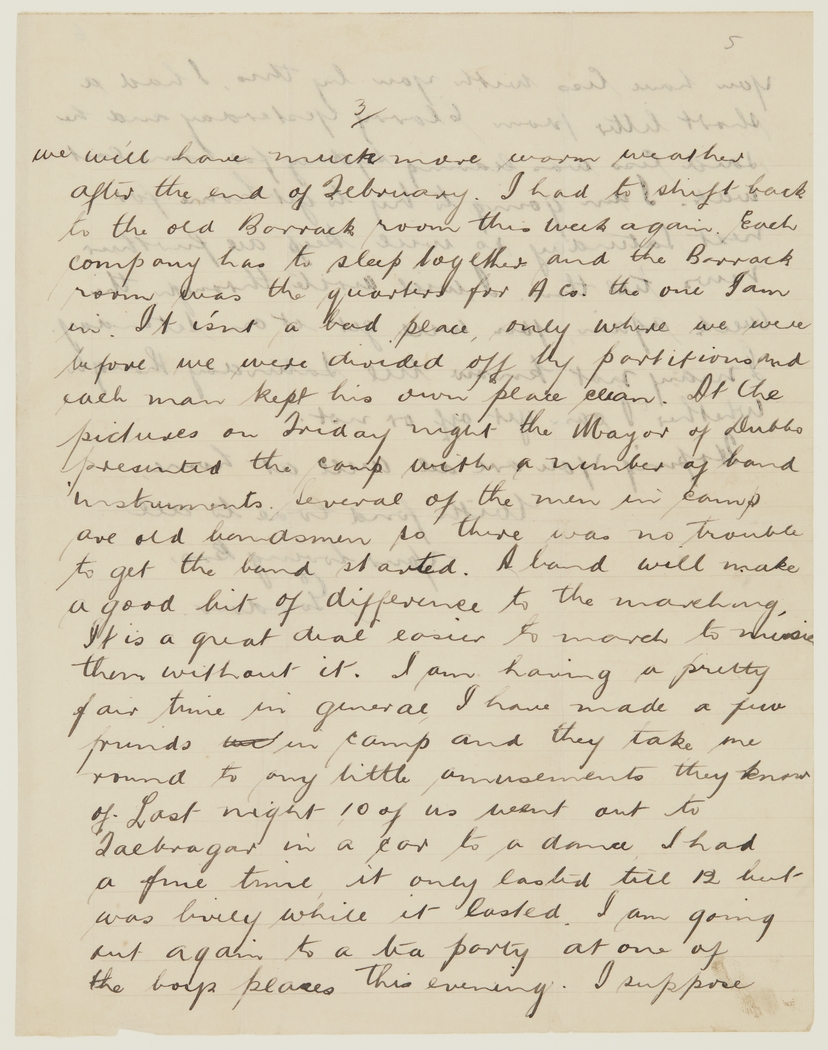 5
3/
we will have much more warm weather
after the end of February. I had to shift back
to the old Barrack room this week again. Each
company has to sleep together and the Barrack
room was the quarters for A co: the one I am
in. It isn't a bad place, only where we were
before we were divided off by partitions and
each man kept his own place clean. At the
pictures on Friday night the Mayor of Dubbo
presented the camp with a number of band
instruments. Several of the men in camp
are old bandsmen so there was no trouble
to get the band started. A band will make
a good bit of difference to the marching.
It is a great deal easier to march to music
then without it. I am having a pretty
fair time in general I have made a few
friends in camp and they take me
round to any little amusements they know
of. Last night 10 of us went out to
Talbragar in a car to a dance I had
a fine time, it only lasted till 12 but
was lively while it lasted. I am going
out again to a tea party at one of
the boys places this evening. I suppose